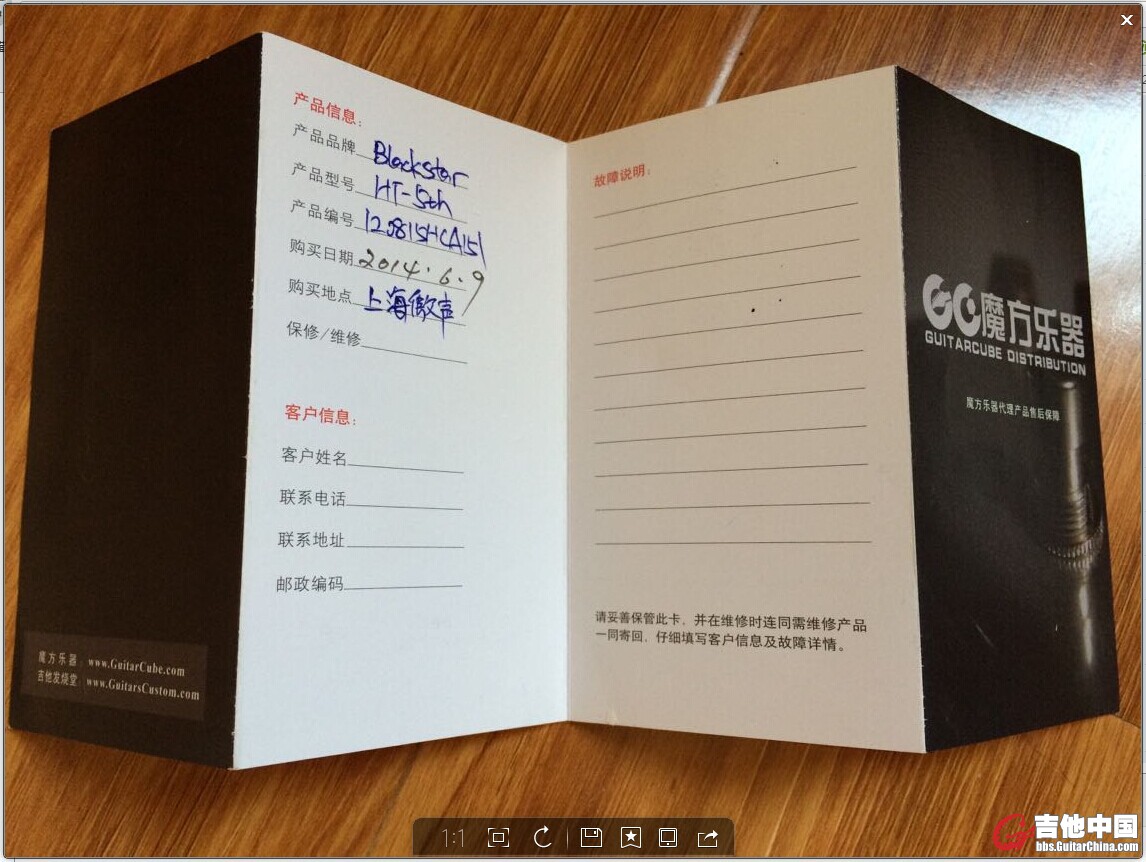 产品信息:
产品品牌 Blackstar
产品型号 HT-5th
产品编号 120815HCA151
购买日期 2014.6.9
购买地点 上海傲声
保修/维修
客户信息:
客户姓名
联系电话
联系地址
邮政编码
故障说明:
请妥善保管此卡，并在维修时连同需维修产品
一同寄回，仔细填写客户信息及故障详情。
GC魔方乐器
GUITARCUBE DISTRIBUTION
魔方乐器代理产品售后保障
魔方乐器 www.GuitarCube.com
吉他发烧堂 www.GuitarsCustom.com
1:1
吉他中国
bbs.GuitarChina.com